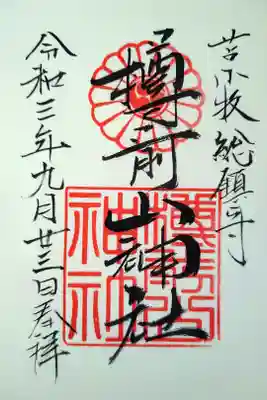 苫小牧総鎮守
樽前山神社
樽前山神社
令和三年九月廿三日奉拝